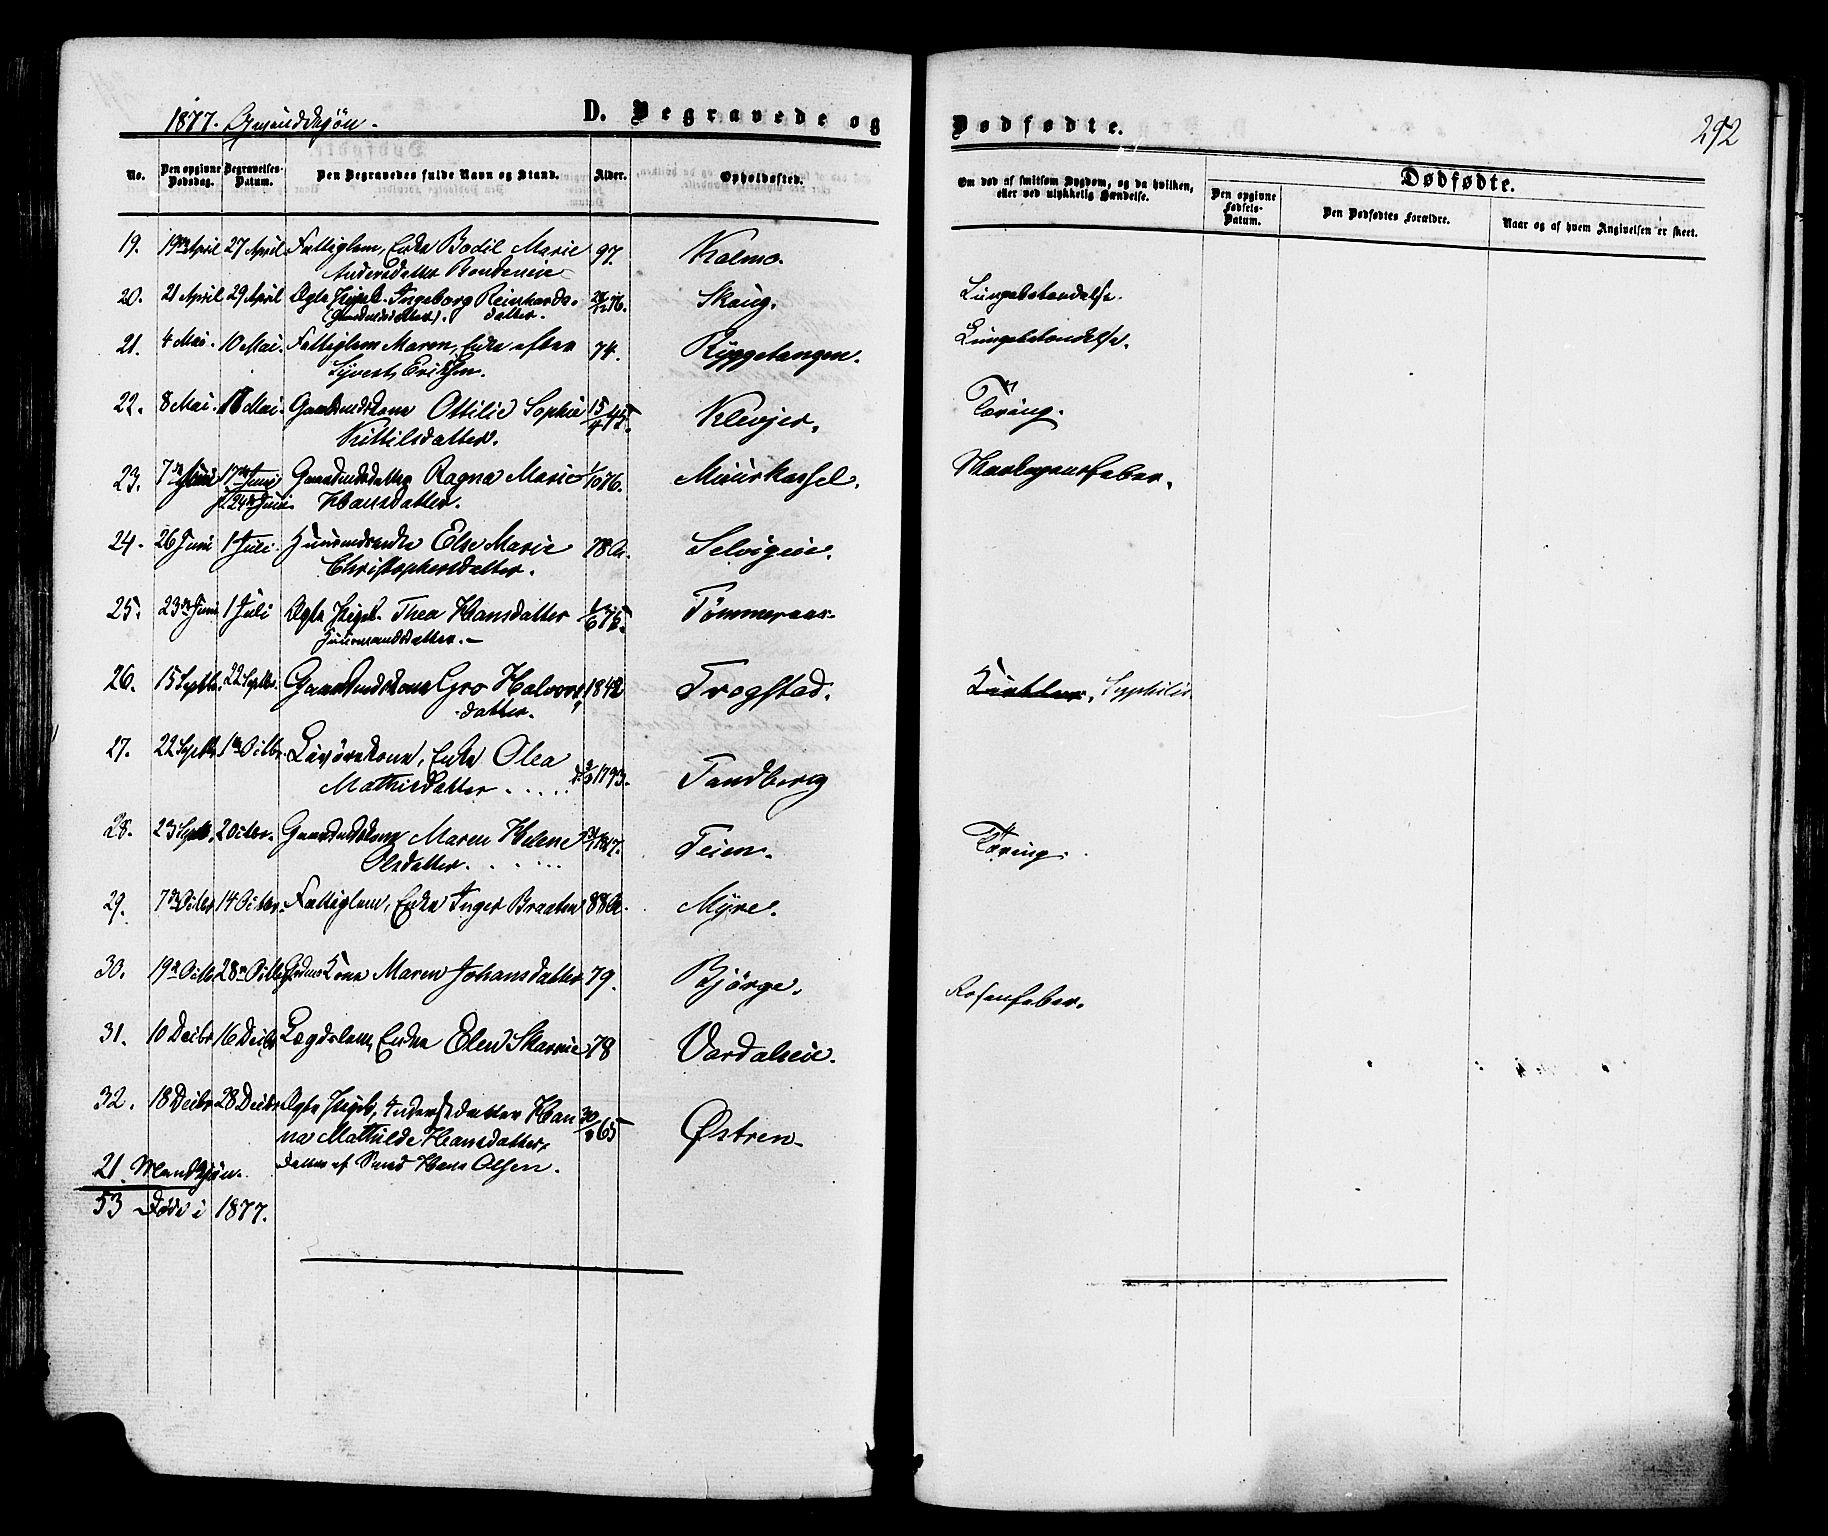 1877. Qvindekjøn.
D. Begravede og Dødfødte.
292
No. Den opgivne Dødsdag. Begravelses-Datum. Den Begravedes fulde Navn og Stand. Alder. Opholdssted.
Om død af smitsom Sygdom, og da hvilken, eller ved ulykkelig Hændelse.
Dødfødte.
Den opgivne Fødsels-Datum. Den Dødfødtes Forældre. Naar og af hvem Angivelsen er skeet.
19. 19de April 27 April Fattiglem, Enke Bodil Marie 97. Kalmo.
Andersdatter Bondeneie
20. 21 April 29 April Ægte Pige. Ingeborg Reinhards- 76. Skaug. Lungebetændelse.
datter.
21. 4 Mai. 10 Mai. Fattiglem Maren, Enke efter 74. Ryggetangen. Lungebetændelse.
Syvert Eriksen.
22. 8 Mai. 18 Mai. Gaardmdskone Ottilie Sophie 15/4 45. Klevjer. Tæring.
Kittilsdatter.
23. 7de Juni 17de Juni Gaardmdsdatter Ragna Marie 1/10 76. Muurkassel. Skarlagensfeber.
24de Juni. Hansdatter.
24. 26 Juni 1 Juli. Huusmdsenke Else Marie 78 A. Selvigeie.
Christophersdatter.
25. 23de Juni 1 Juli Ægte Pige. Thea Hansdatter 75. Tømmeraas.
Huusmandsdatter.
26. 15 Septbr. 22 Septbr. Gaardmdskone Gro Halvors- 1842 Trogstad. Syphilis.
datter.
27. 22 Septbr 1ste Octbr. Enke Olea 1793. Tandberg
Mathisdatter . . . . .
28. 23 Septb. 2 Octbr. Gaardmdskone Maren Helene 1817. Teien. Tæring.
Olsdatter. . . . . .
29. 7de Octbr 14 Octbr. Fattiglem, Enke Inger Braaten 88 A. Myre.
30. 19de Octbr 28de Octbr Kone Maren Johansdatter 79. Bjørge. Rosenfeber.
31. 10 Decbr 16 Decbr Lægdslem, Enke Elen Skarnie 78 Vardalseie.
32. 18 Decbr 28 Decbr Ægte Pige, Han- 30 65 Østren
na Mathilde Hansdatter,
datter af Hans Olsen.
21. Mandkjøn.
53 Døde i 1877.